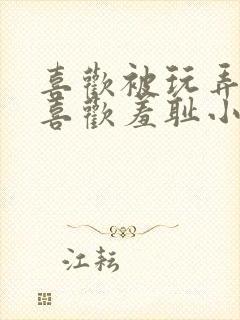 喜歡被玩弄
喜歡羞耻小
江耘